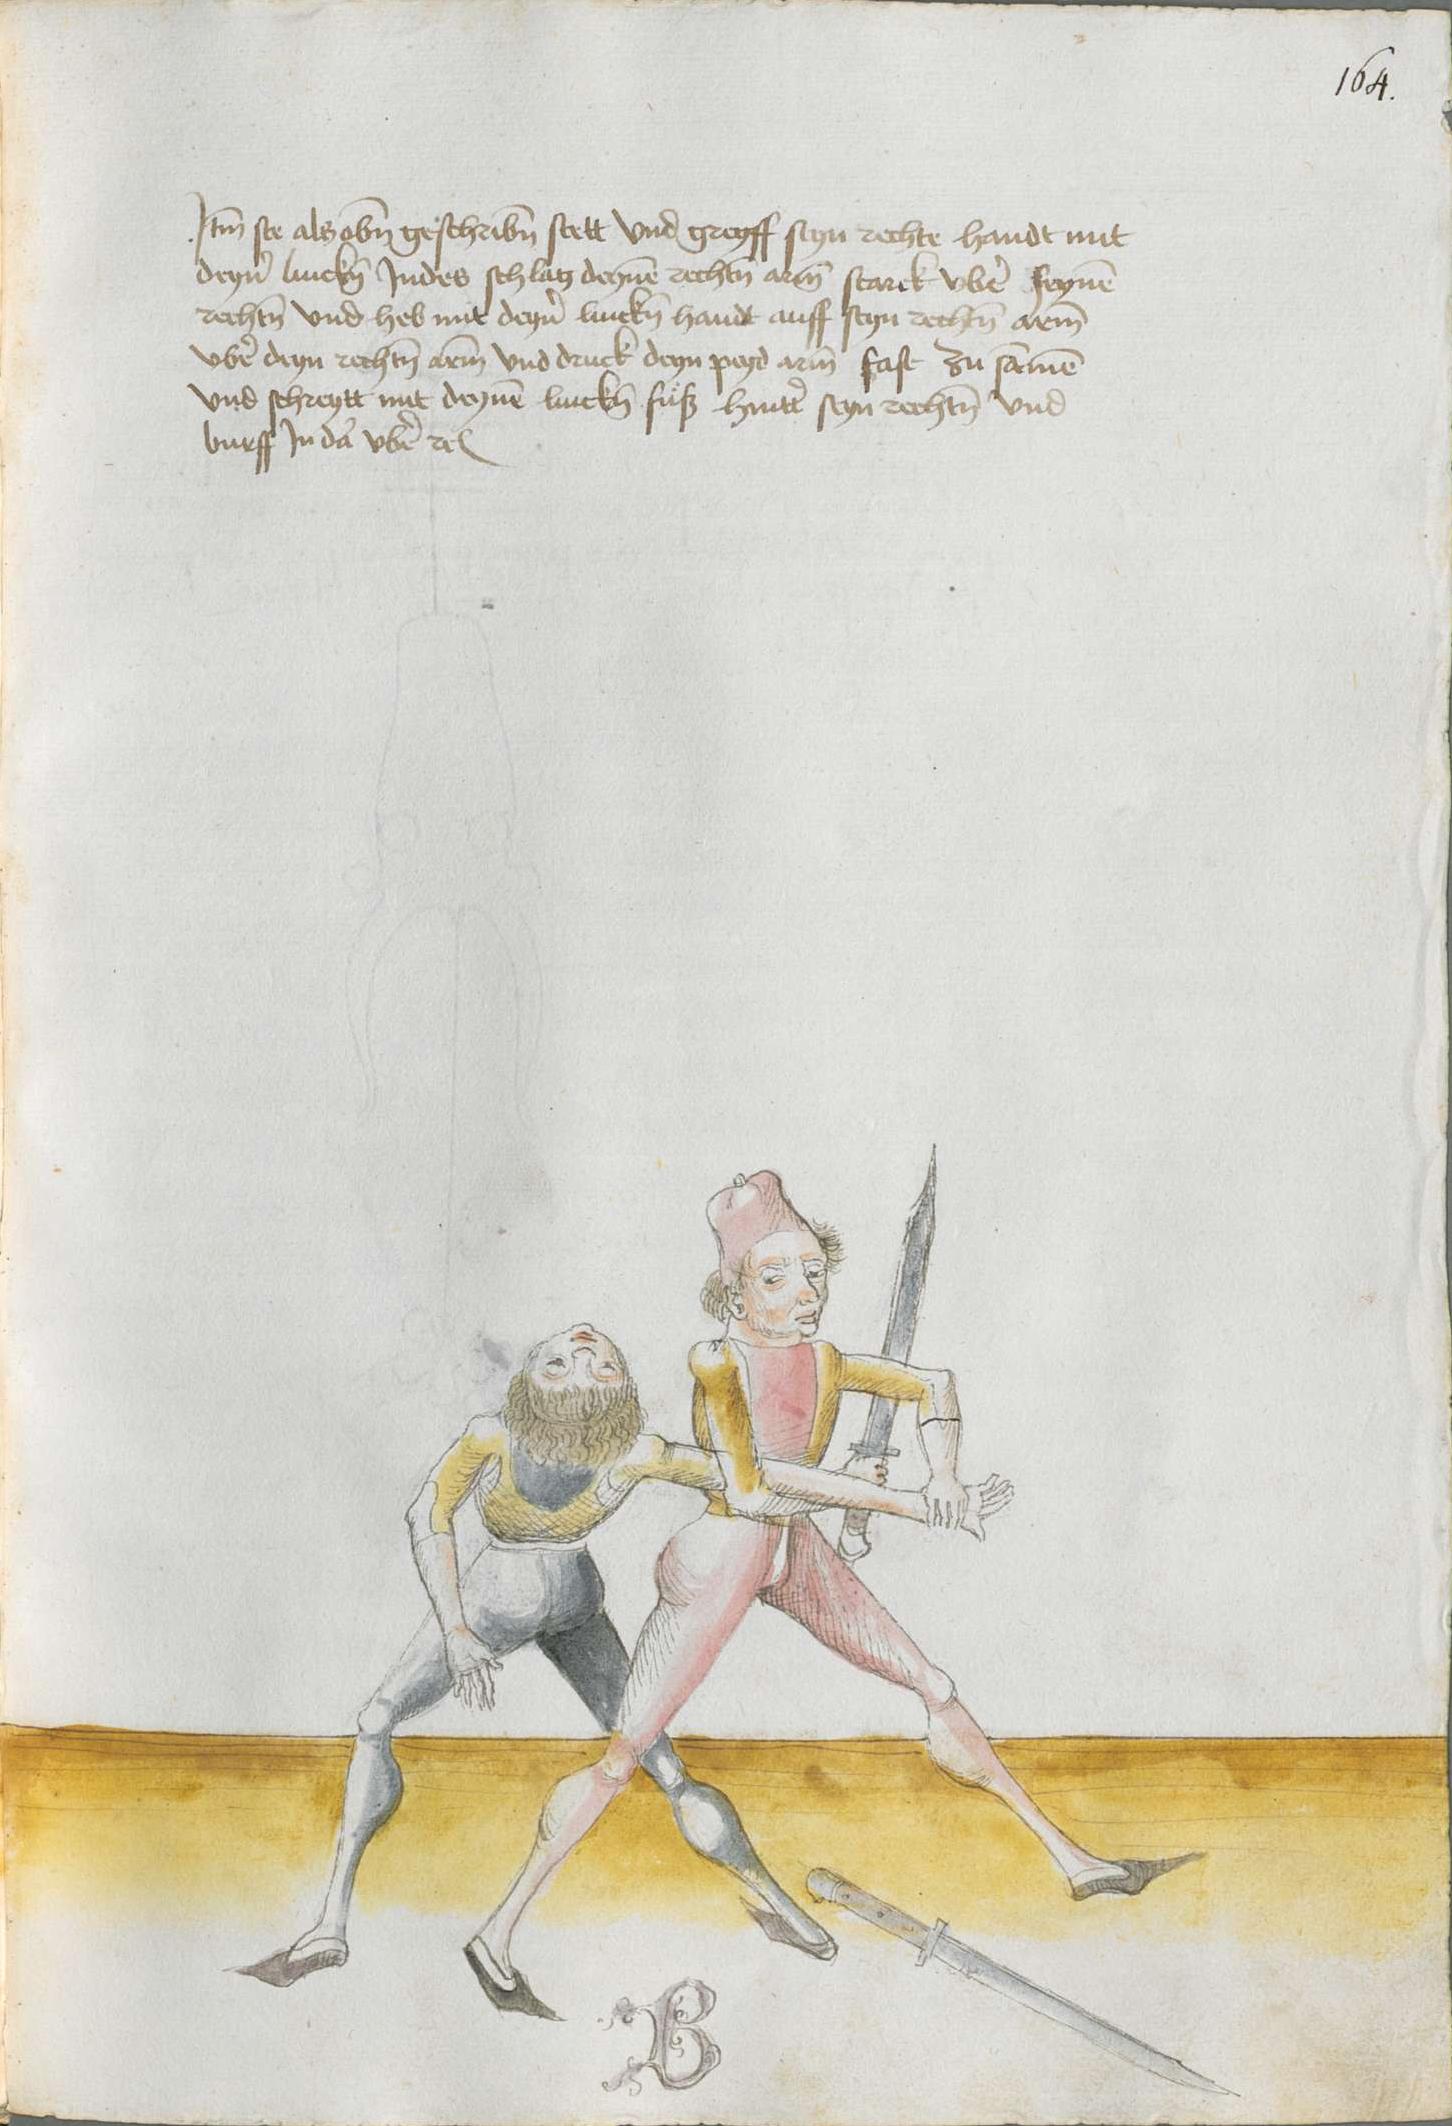 164.
Itm̄ ste als obn̄ geschribn̄ stett vnd greyff seyn rechte handt mit
deyn̄ linckn̄ Jndes schlag deynē rechtn̄ arm̄ starck vbe᷑ seynē
rechtn̄ vnd heb mit deyn̄ linckn̄ handt auff seyn rechtn̄ arm̄
vbe᷑ deyn rechtn̄ arm̄ vnd druck deyn peyd arm̄ fast zu sāmē
vnd schreytt mit deynē linckn̄ fuͦß hintt᷑ seyn rechtn̄ vnd
wurff Jn da᷑ vbe᷑ rc
B